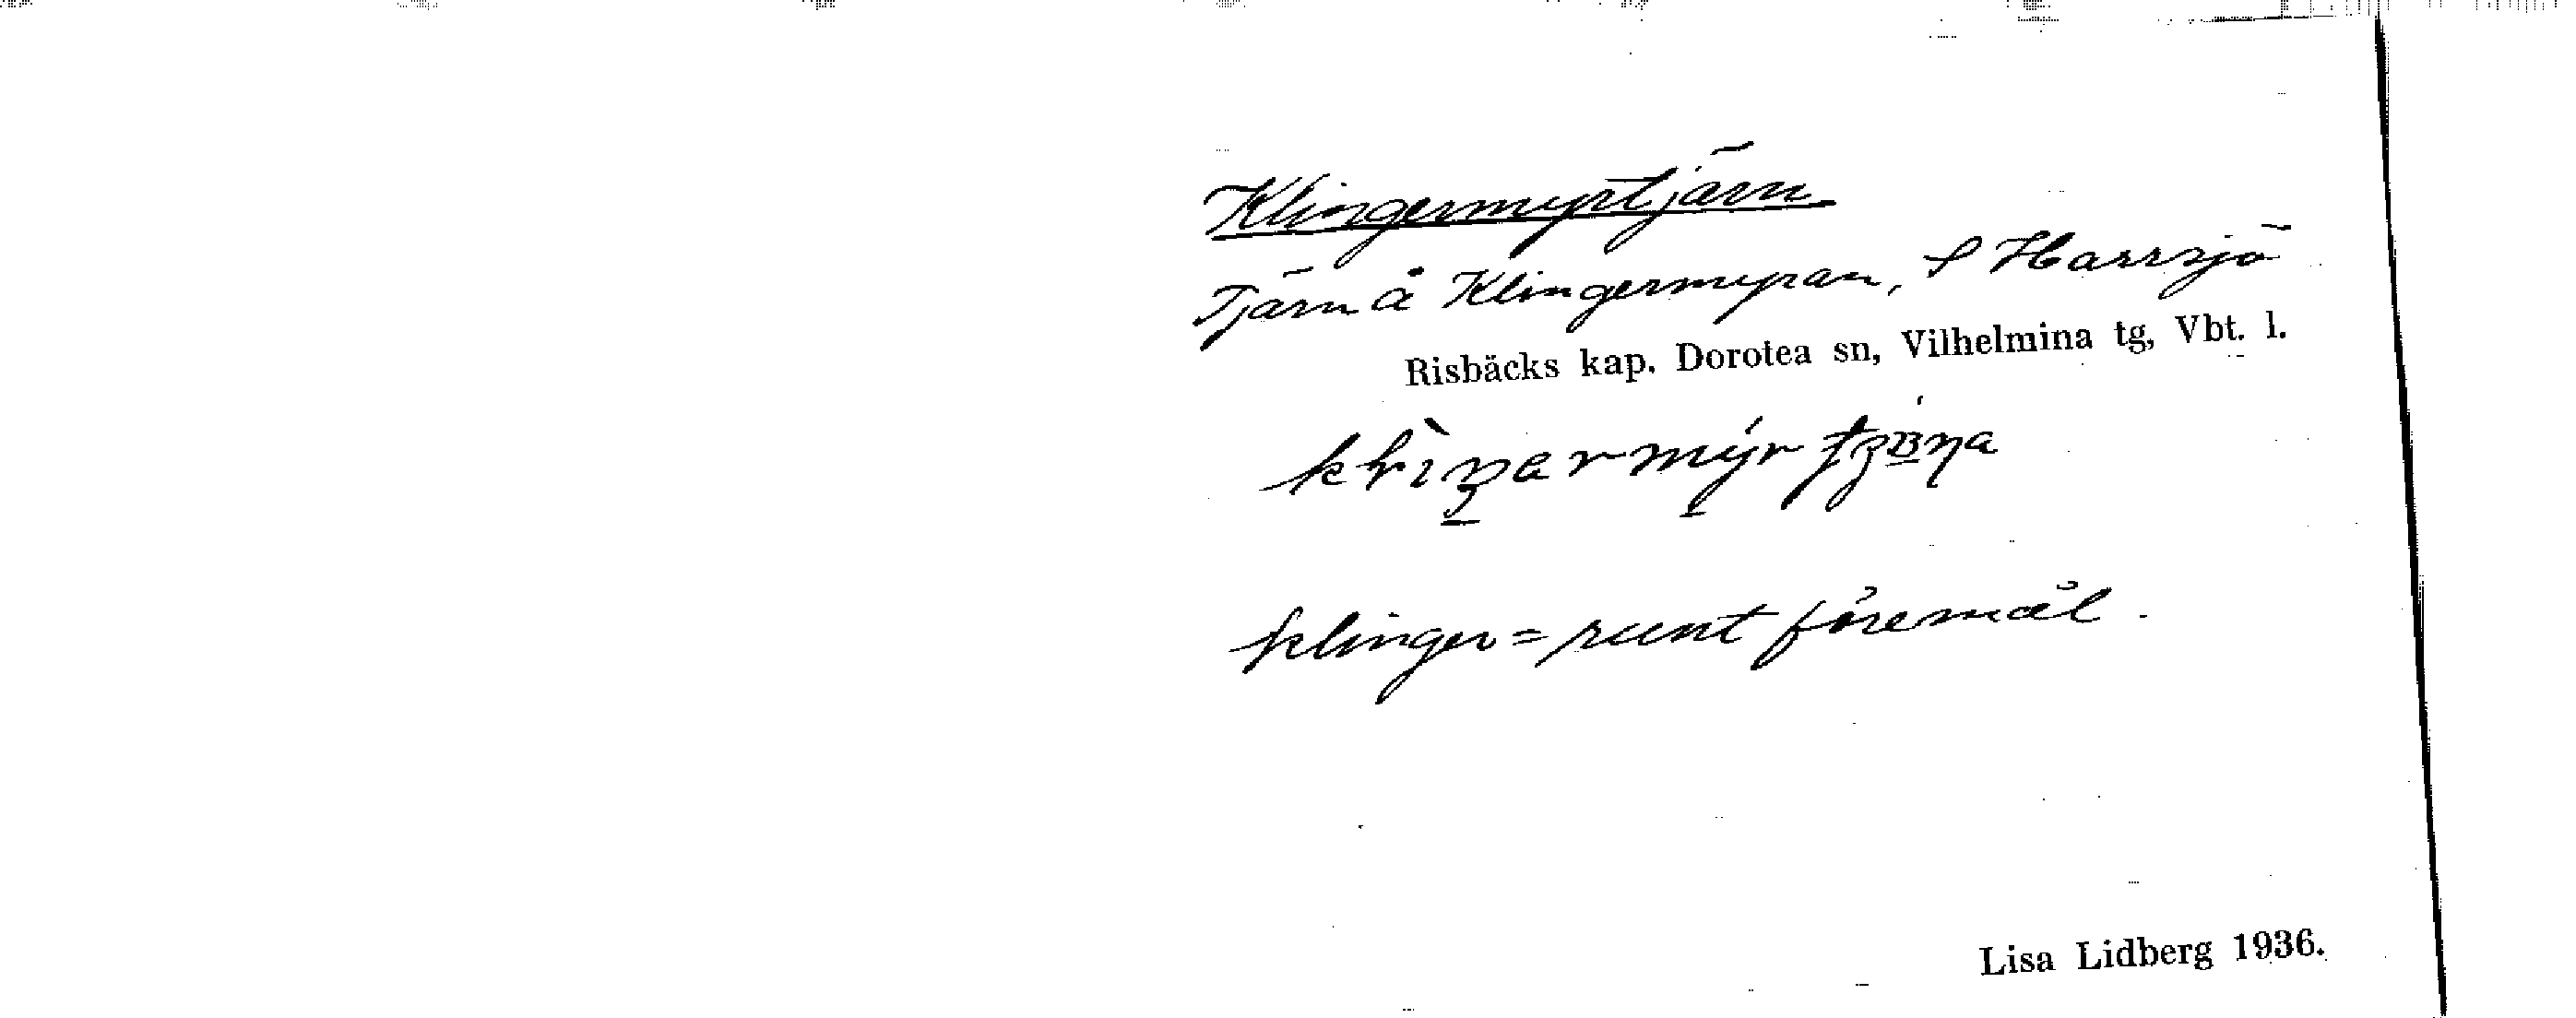 Klingermyrtjärn
Tjärn å Klingermyran, S Harrsjö
Risbäcks kap. Dorotea sn, Vilhelmina tg, Vbt. l.
klinger = runt föremål.
Lisa Lidberg 1936.